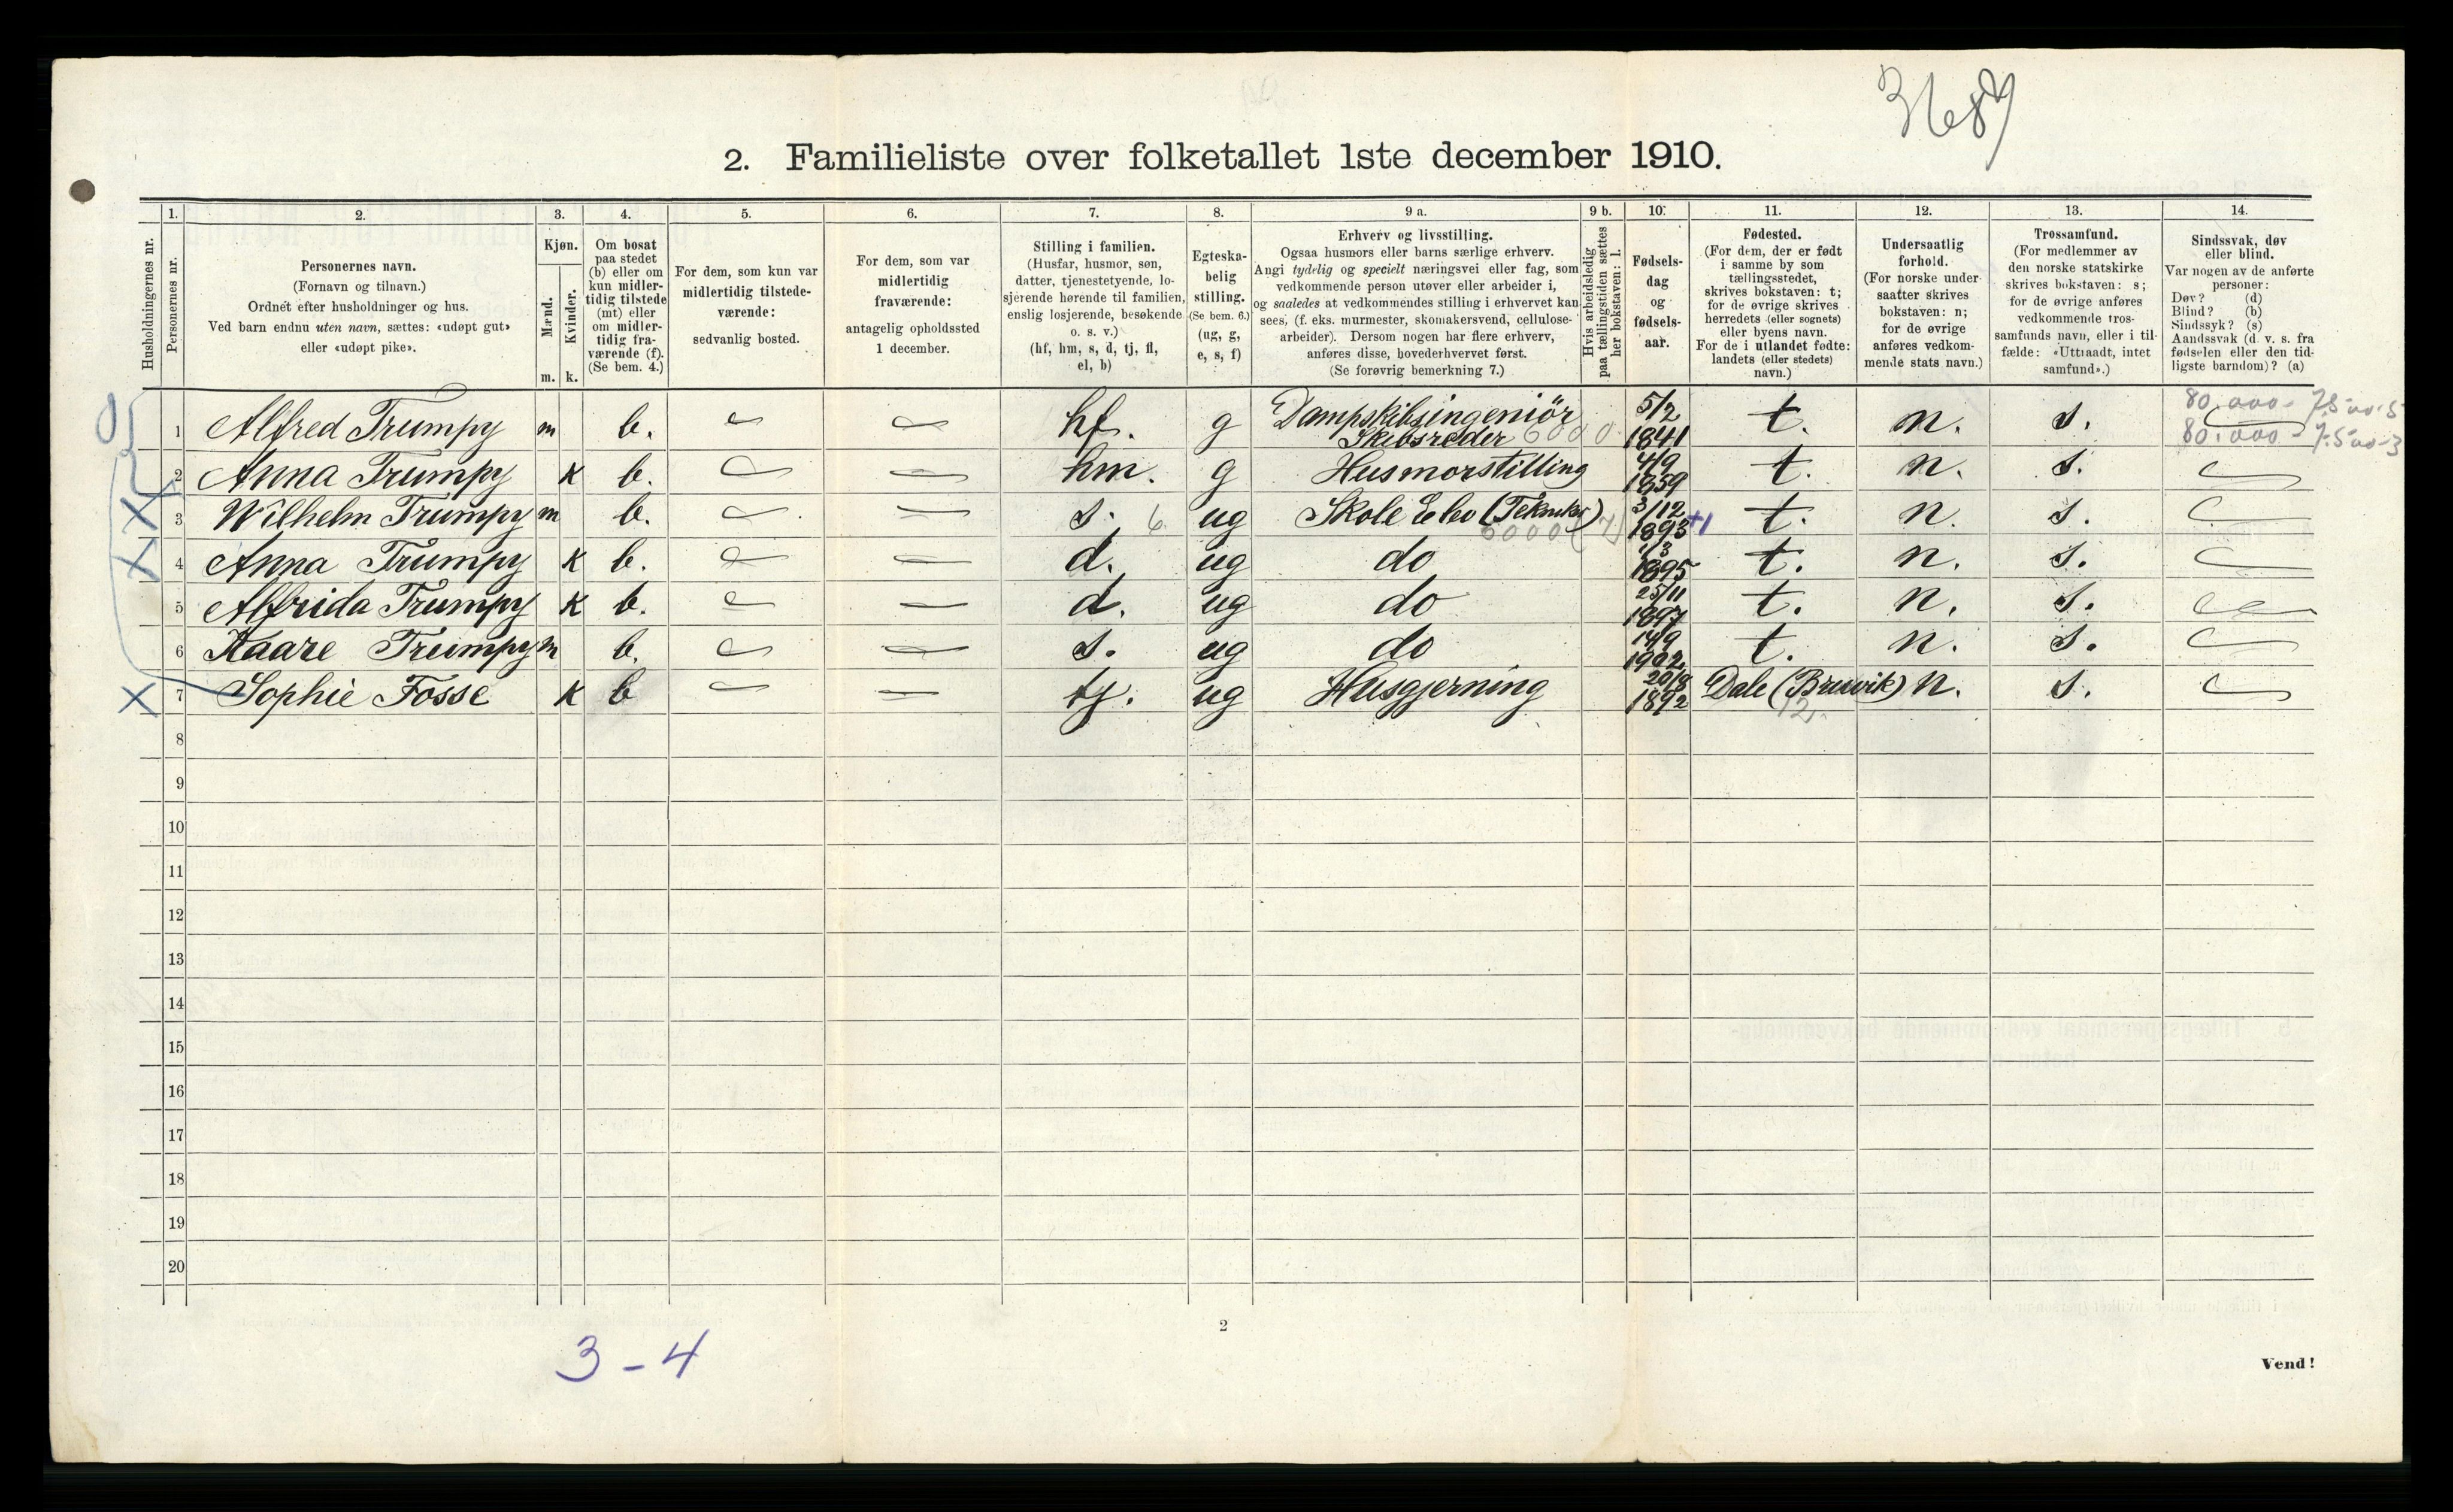 3689
2. Familieliste over folketallet 1ste december 1910.
1. 2. 3. 4. 5. 6. 7. 8. 9 a. 9 b. 10. 11. 12. 13. 14.
Husholdningernes nr.
Personernes nr.
Personernes navn.
(Fornavn og tilnavn.)
Ordnet efter husholdninger og hus.
Ved barn endnu uten navn, sættes: «udøpt gut»
eller «udøpt pike».
Kjøn.
Mænd.
Kvinder.
m. k.
Om bosat
paa stedet
(b) eller om
kun midler-
tidig tilstede
(mt) eller
om midler-
tidig fra-
værende (f).
(Se bem. 4.)
For dem, som kun var
midlertidig tilstede-
værende:
sedvanlig bosted.
For dem, som var
midlertidig
fraværende:
antagelig opholdssted
1 december.
Stilling i familien.
(Husfar, husmor, søn,
datter, tjenestetyende, lo-
sjerende hørende til familien,
enslig losjerende, besøkende
o. s. v.)
(hf, hm, s, d, tj, fl,
el, b)
Egteska-
belig
stilling.
(Se bem. 6.)
(ug, g,
e, s, f)
Erhverv og livsstilling.
Ogsaa husmors eller barns særlige erhverv.
Angi tydelig og specielt næringsvei eller fag, som
vedkommende person utøver eller arbeider i,
og saaledes at vedkommendes stilling i erhvervet kan
sees, (f. eks. murmester, skomakersvend, cellulose-
arbeider). Dersom nogen har flere erhverv,
anføres disse, hovederhvervet først.
(Se forøvrig bemerkning 7.)
Hvis arbeidsledig
paa tællingstiden sættes
her bokstaven: l.
Fødsels-
dag
og
fødsels-
aar.
Fødested.
(For dem, der er født
i samme by som
tællingsstedet,
skrives bokstaven: t;
for de øvrige skrives
herredets (eller sognets)
eller byens navn.
For de i utlandet fødte:
landets (eller stedets)
navn.)
Undersaatlig
forhold.
(For norske under-
saatter skrives
bokstaven: n;
for de øvrige
anføres vedkom-
mende stats navn.)
Trossamfund.
(For medlemmer av
den norske statskirke
skrives bokstaven: s;
for de øvrige anføres
vedkommende tros-
samfunds navn, eller i til-
fælde: «Uttraadt, intet
samfund».)
Sindssvak, døv
eller blind.
Var nogen av de anførte
personer:
Døv? (d)
Blind? (b)
Sindssyk? (s)
Aandssvak (d. v. s. fra
fødselen eller den tid-
ligste barndom)? (a)
1 Alfred Trumpy m b. hf. g Dampskibsingeniör Skibsreder 6000 5/2 1841 t. n. s.
2 Anna Trumpy k b. hm. g Husmorstilling 4/9 1859 t. n. s.
3 Wilhelm Trumpy m b. s. 6 ug Skole Elev (Tekniker) 3/12 1893 +1 t. n. s.
4 Anna Trumpy k b. d. ug do 1/3 1895 t. n. s.
5 Alfrida Trumpy k b. d. ug do 25/11 1897 t. n. s.
6 Kaare Trumpy m b. s. ug do 14/9 1902 t. n. s.
7 Sophie Fosse k b tj. ug Husgjerning 20/8 1892 Dale (Bruvik) n. s.
12.
8
9
10
11
12
13
14
15
16
17
18
19
20
2
3-4
Vend!